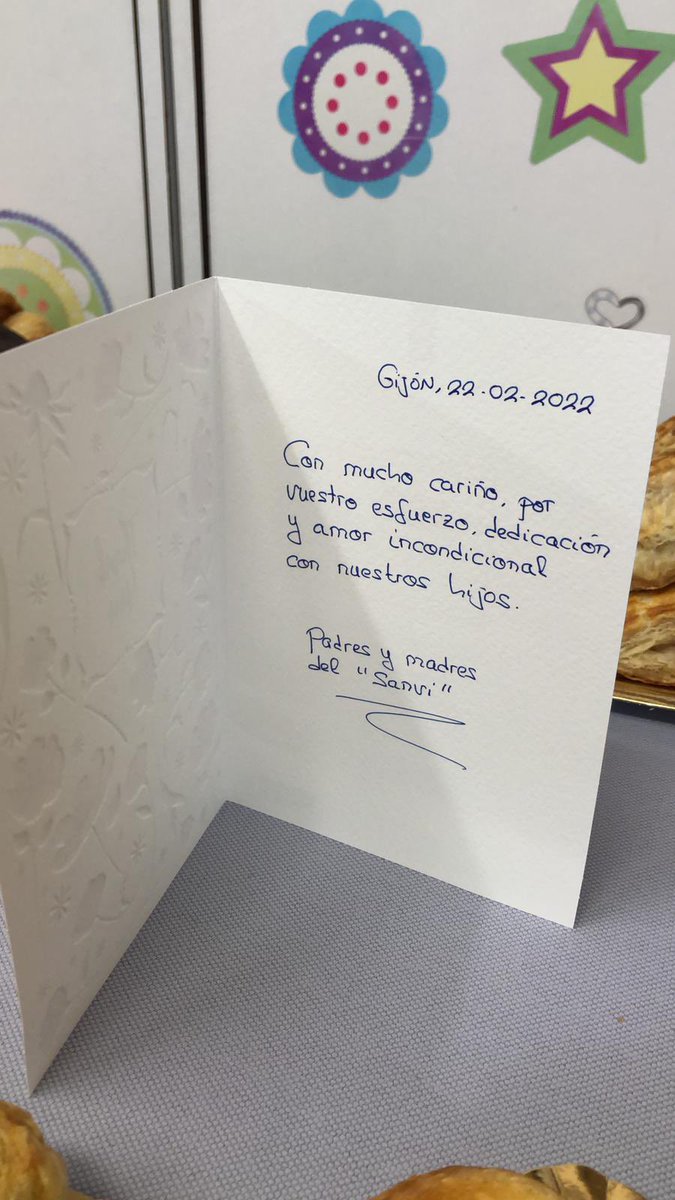 Gijón, 22-02-2022
Con mucho cariño, por
vuestro esfuerzo, dedicación
y amor incondicional
con nuestros hijos.
Padres y madres
del "Sanvi"